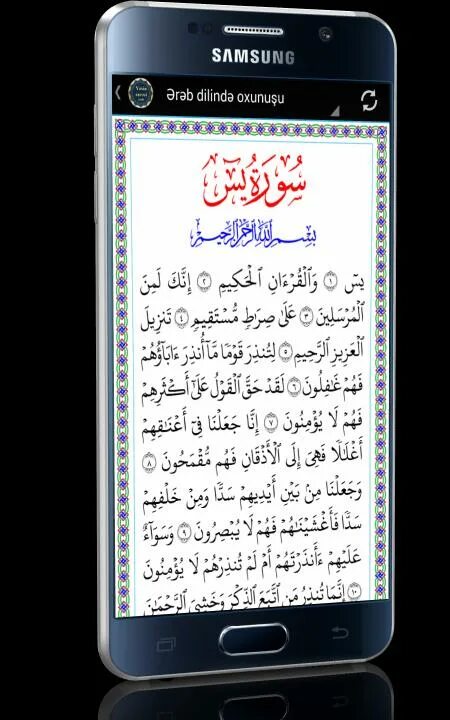 SAMSUNG
Ərəb dilində oxunuşu
سُورَةُ يسٓ
بِسْمِ اللَّهِ الرَّحْمَٰنِ الرَّحِيمِ
يسٓ ١ وَالْقُرْءَانِ الْحَكِيمِ ٢ إِنَّكَ لَمِنَ
الْمُرْسَلِينَ ٣ عَلَىٰ صِرَاطٍ مُّسْتَقِيمٍ ٤ تَنزِيلَ
الْعَزِيزِ الرَّحِيمِ ٥ لِتُنذِرَ قَوْمًا مَّا أُنذِرَ ءَابَاؤُهُمْ
فَهُمْ غَافِلُونَ ٦ لَقَدْ حَقَّ الْقَوْلُ عَلَىٰ أَكْثَرِهِمْ
فَهُمْ لَا يُؤْمِنُونَ ٧ إِنَّا جَعَلْنَا فِي أَعْنَاقِهِمْ
أَغْلَالًا فَهِيَ إِلَى الْأَذْقَانِ فَهُم مُّقْمَحُونَ ٨
وَجَعَلْنَا مِنْ بَيْنِ أَيْدِيهِمْ سَدًّا وَمِنْ خَلْفِهِمْ
سَدًّا فَأَغْشَيْنَاهُمْ فَهُمْ لَا يُبْصِرُونَ ٩ وَسَوَاءٌ
عَلَيْهِمْ ءَأَنذَرْتَهُمْ أَمْ لَمْ تُنذِرْهُمْ لَا يُؤْمِنُونَ
١٠ إِنَّمَا تُنذِرُ مَنِ اتَّبَعَ الذِّكْرَ وَخَشِيَ الرَّحْمَٰنَ